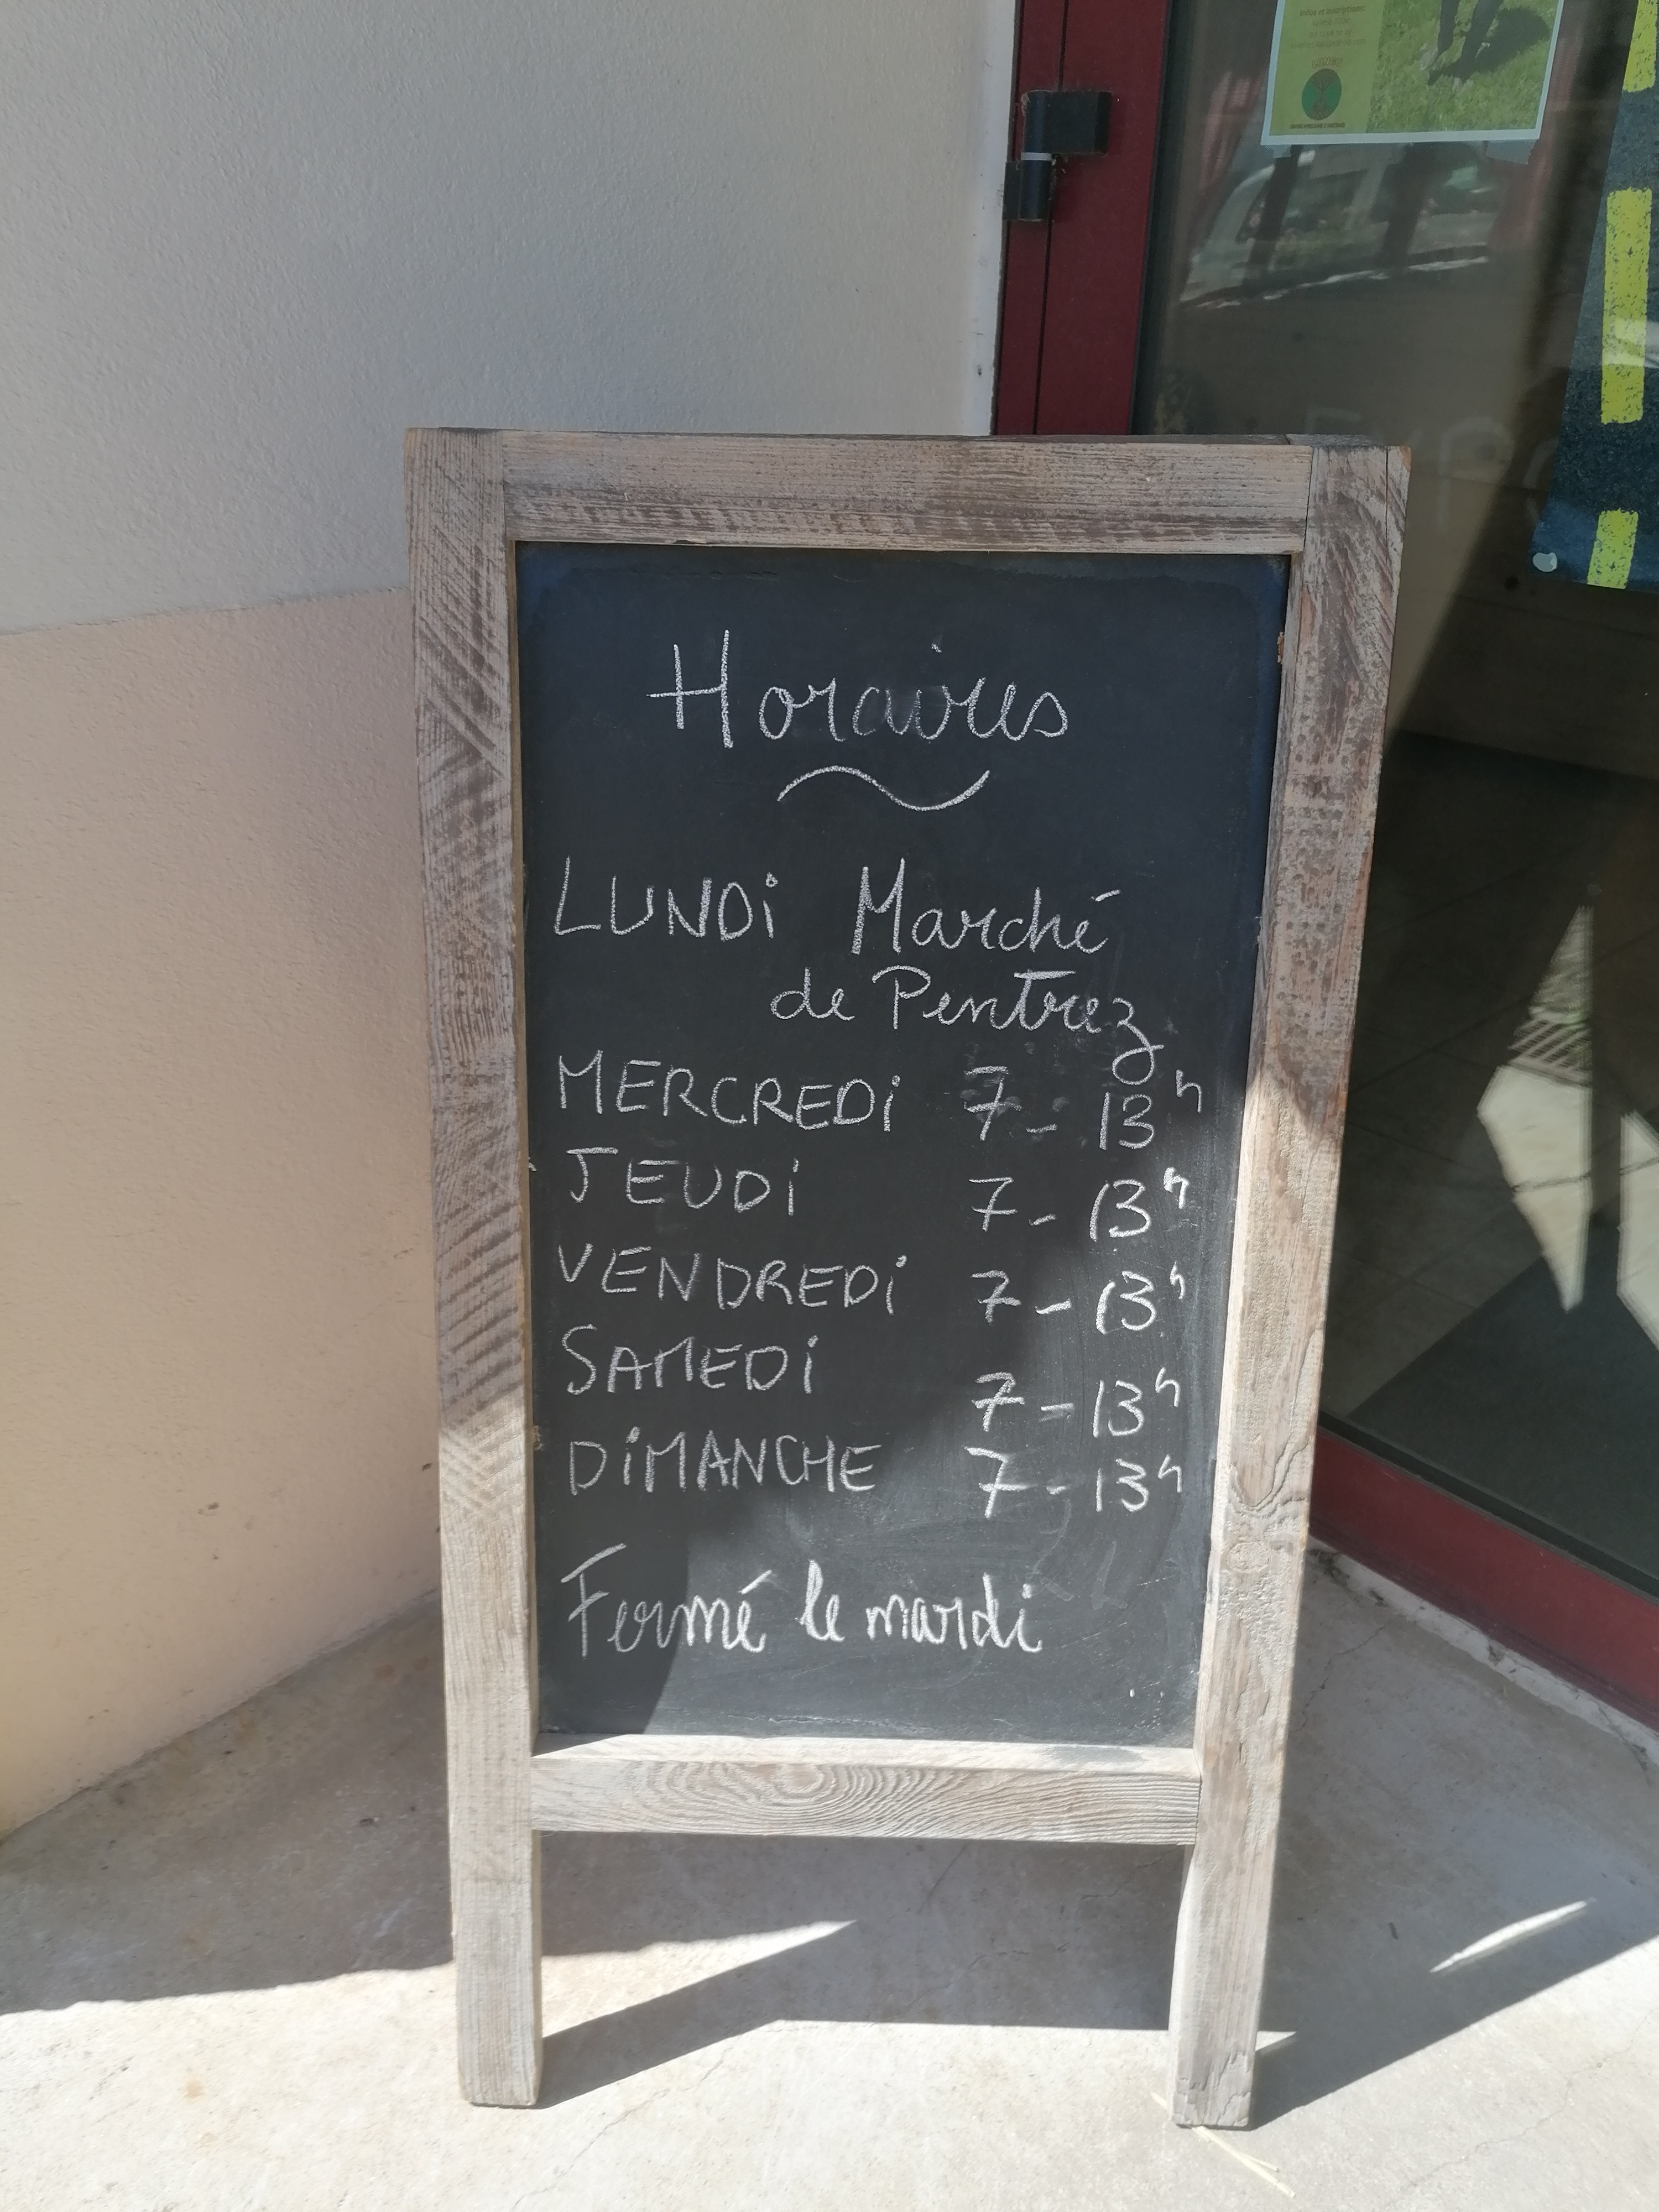 Horaires
LUNDi Marché
de Pentrez
MERCREDi 7 - 13h
JEUDi 7 - 13h
VENDREDi 7 - 13h
SAMEDi 7 - 13h
DiMANCHE 7 - 13h
Fermé le mardi